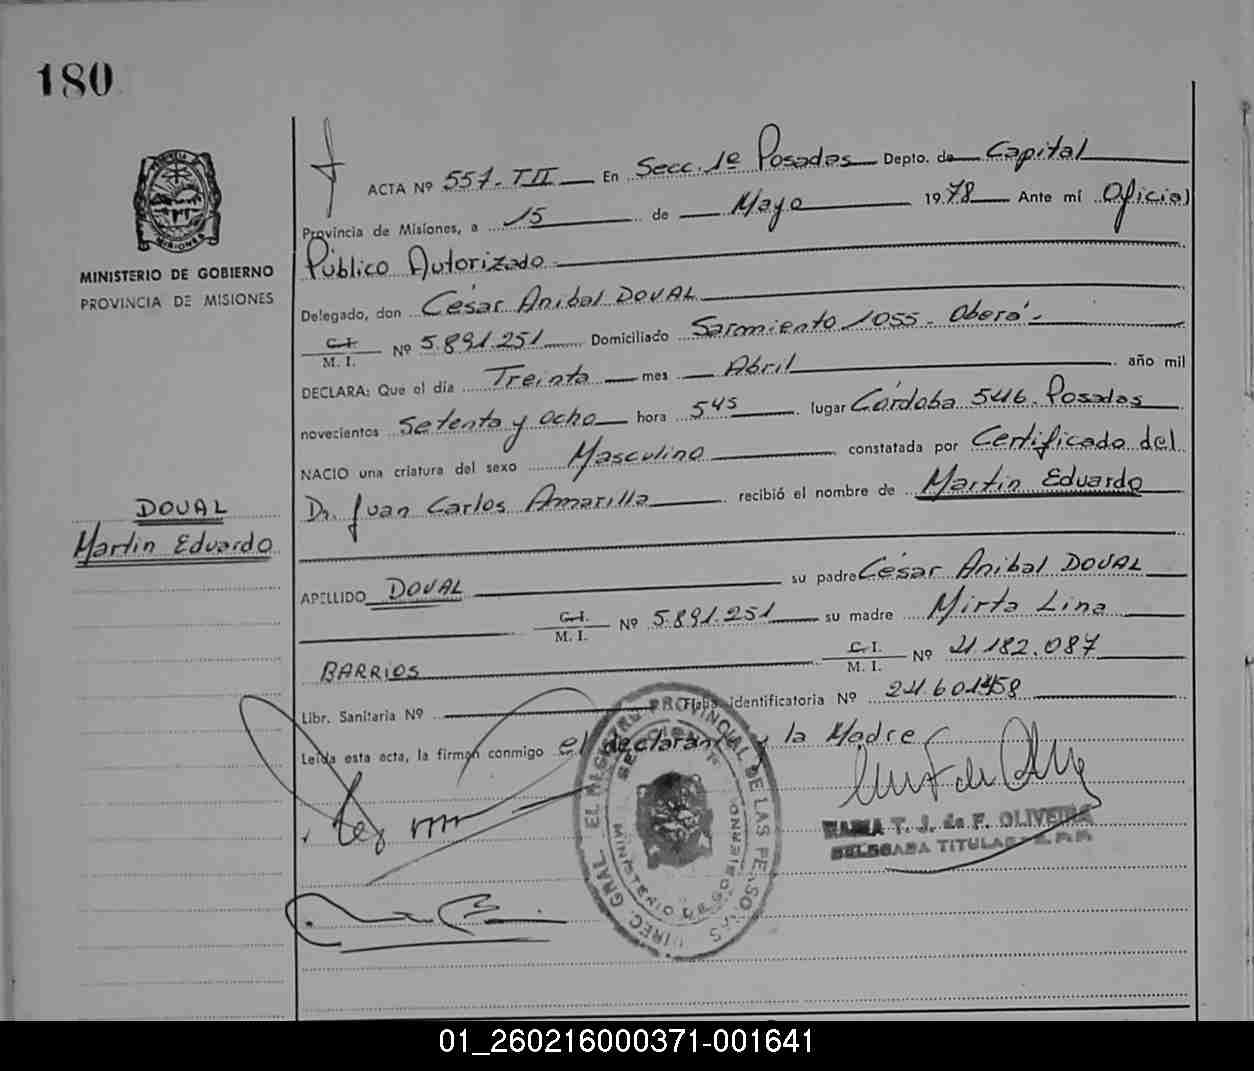 180
MINISTERIO DE GOBIERNO
PROVINCIA DE MISIONES
ACTA Nº 557-TII En Secc. 1º Posadas Depto. de Capital
Provincia de Misiones, a 15 de Mayo 1978 Ante mí Oficial
Público Autorizado
Delegado, don César Anibal DOVAL
C.I.
M. I. Nº 5.891.251 Domiciliado Sarmiento 1055 - Oberá -
DECLARA: Que el día Treinta mes Abril año mil
novecientos Setenta y ocho hora 545 lugar Córdoba 546. Posadas
NACIO una criatura del sexo Masculino constatada por Certificado del
Dr. Juan Carlos Amarilla recibió el nombre de Martin Eduardo
DOVAL
Martin Eduardo
APELLIDO DOVAL su padre César Anibal DOVAL
C.I.
M. I. Nº 5.891.251 su madre Mirta Lina
BARRIOS C.I.
M. I. Nº 21.182.087
Libr. Sanitaria Nº Ficha identificatoria Nº
Leída esta acta, la firman conmigo el declarante y la Madre
MARIA T. J. de F. OLIVEIRA
DELEGADA TITULAR
DIREC. GRAL. EL REGISTRO PROVINCIAL DE LAS PERSONAS
MINISTERIO DE GOBIERNO
01_260216000371-001641